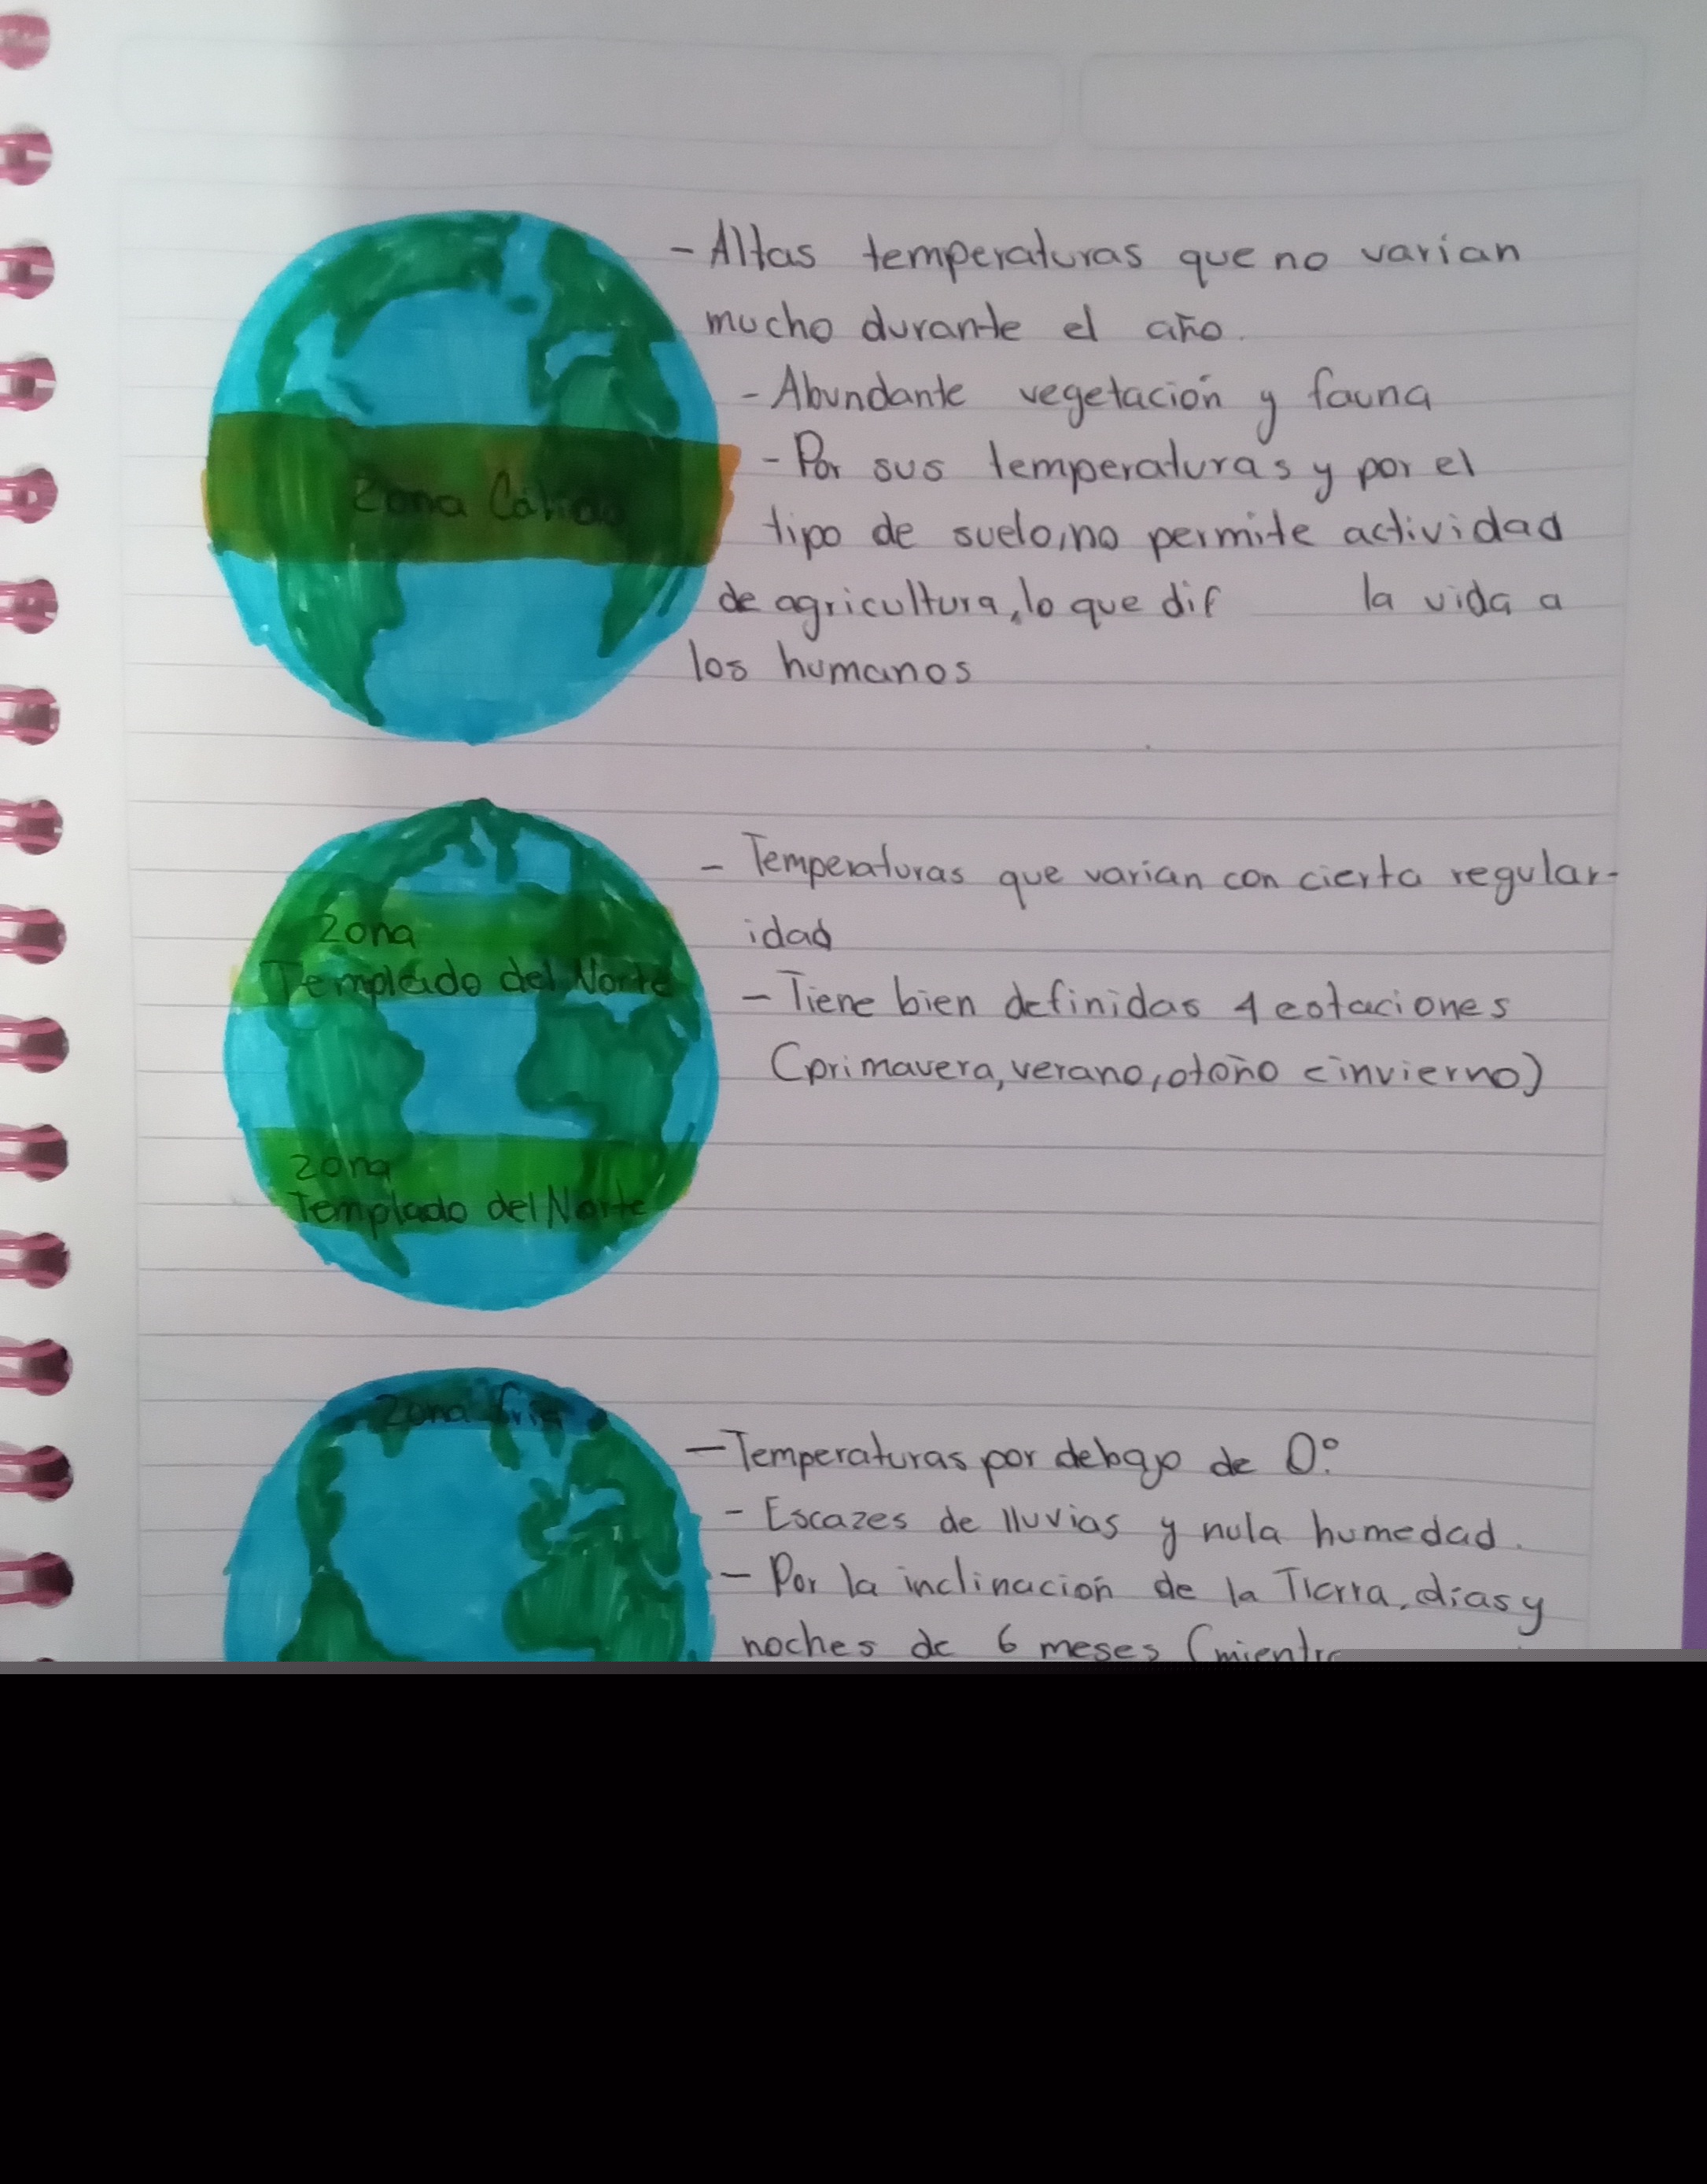 - Altas temperaturas que no varian
mucho durante el año.
- Abundante vegetación y fauna
- Por sus temperaturas y por el
tipo de suelo, no permite actividad
de agricultura, lo que dif la vida a
los humanos
Zona Cálida
- Temperaturas que varian con cierta regular-
idad
- Tiene bien definidas 4 estaciones
(primavera, verano, otoño e invierno)
Zona
Templado del Norte
Zona
Templado del Norte
Zona fria
- Temperaturas por debajo de 0°.
- Escazes de lluvias y nula humedad.
- Por la inclinación de la Tierra, días y
noches de 6 meses (